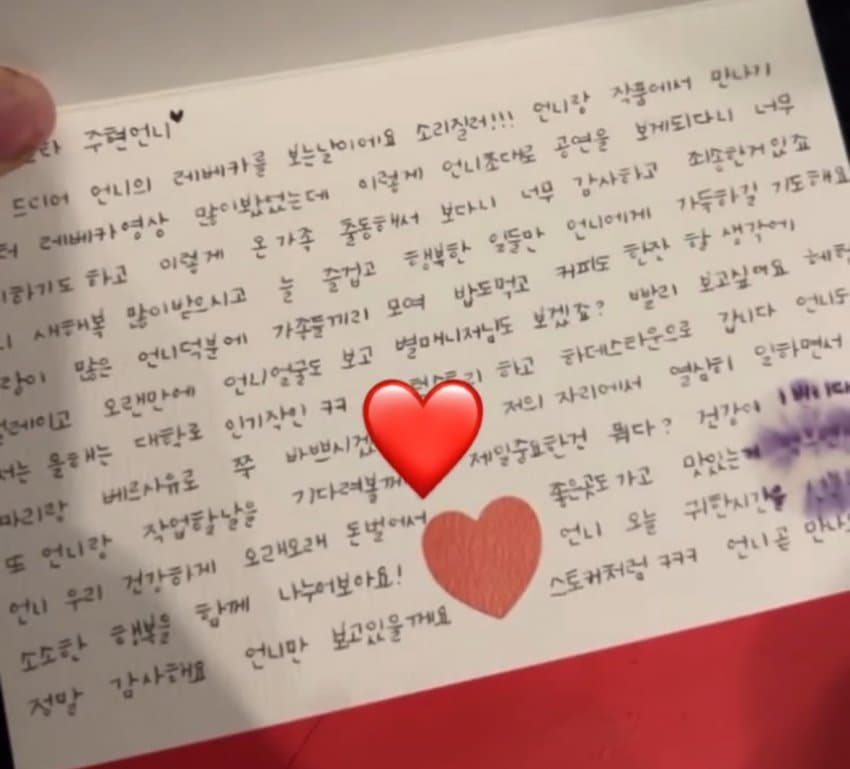 주현언니♥
드디어 언니의 레베카를 보는날이에요 소리질러!!! 언니랑 작품에서 만나기
레베카영상 많이봤었는데 이렇게 언니쪼대로 공연을 보게되다니 너무
하기도 하고 이렇게 온가족 출동해서 보다니 너무 감사하고 죄송한거있죠
새해복 많이받으시고 늘 즐겁고 행복한 일들만 언니에게 가득하길 기도해요
많은 언니덕분에 가족들끼리 모여 밥도먹고 커피도 한잔 할 생각에
오랜만에 언니얼굴도 보고 별매니저님도 보겠죠? 빨리 보고싶어요
올해는 대학로 인기작인 ㅋㅋ 하고 하데스타운으로 갑니다 언니도
베르사유로 쭉 저의 자리에서 열심히 일하면서
또 언니랑 작업할날을 제일중요한건 뭐다? 건강이
언니 우리 건강하게 오래오래 돈벌어서 좋은곳도 가고 맛있는
소소한 행복을 함께 나누어보아요! 언니 오늘 귀한시간을
정말 감사해요 언니만 보고있을께요 스토커처럼 ㅋㅋㅋ 언니곧